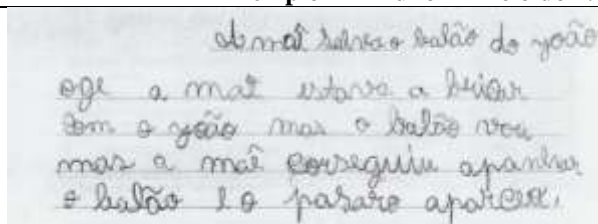 A mãi salva o balão do joão
oge a mãi estava a bricar
com o joão mas o balão vou
mas a mãi conseguiu apanhar
o balão e o pasaro apareceu.